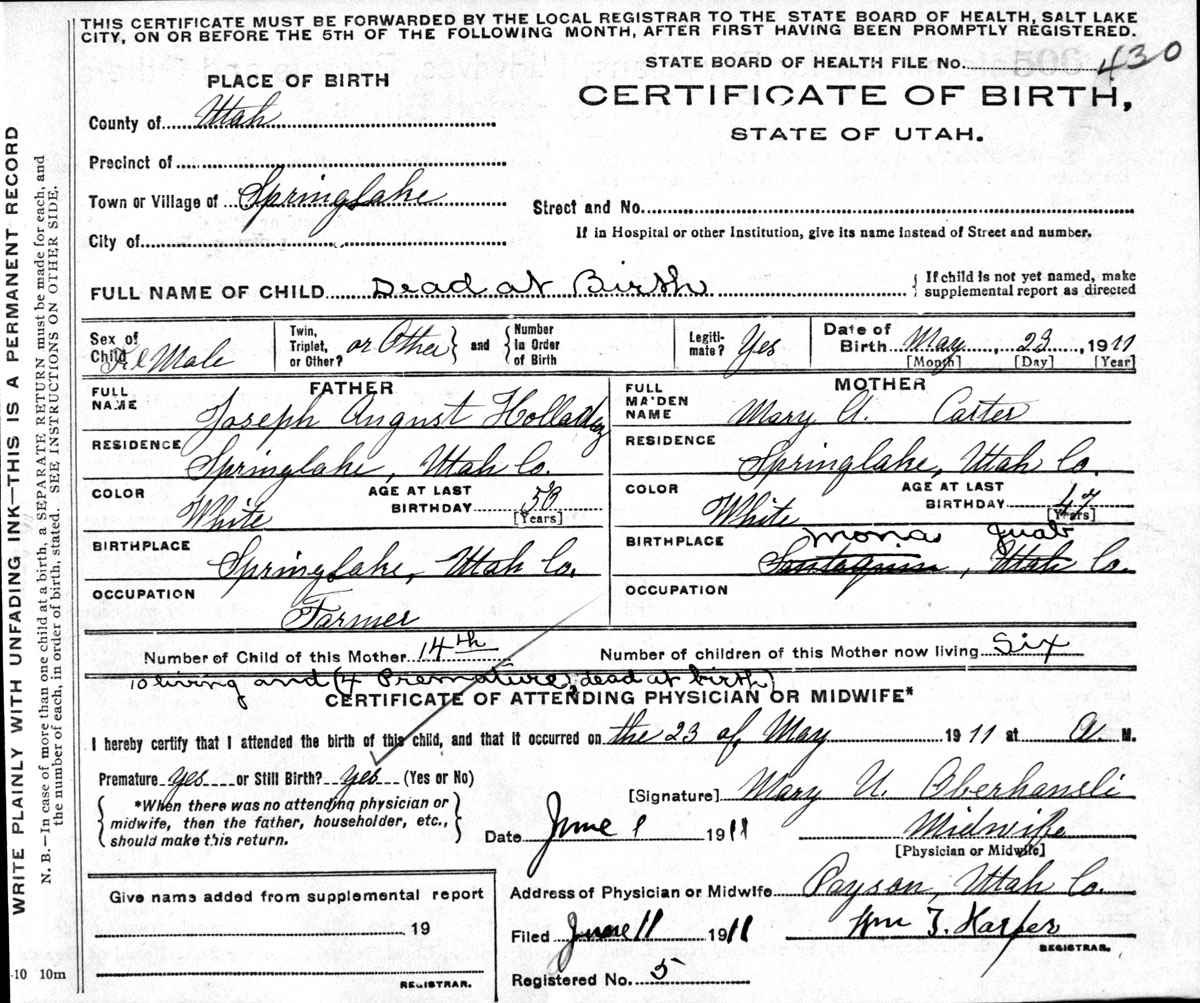 THIS CERTIFICATE MUST BE FORWARDED BY THE LOCAL REGISTRAR TO THE STATE BOARD OF HEALTH, SALT LAKE
CITY, ON OR BEFORE THE 5TH OF THE FOLLOWING MONTH, AFTER FIRST HAVING BEEN PROMPTLY REGISTERED.
STATE BOARD OF HEALTH FILE No. 430
PLACE OF BIRTH
CERTIFICATE OF BIRTH,
STATE OF UTAH.
County of Utah
Precinct of
Town or Village of Springlake
Street and No.
City of
If in Hospital or other Institution, give its name instead of Street and number.
FULL NAME OF CHILD Dead at Birth
{ If child is not yet named, make
supplemental report as directed
Sex of
Child Fe Male
Twin,
Triplet,
or Other? or Other } and { Number
in Order
of Birth
Legiti-
mate? Yes
Date of
Birth May, 23, 1911
[Month] [Day] [Year]
FATHER
FULL
NAME Joseph August Holladay
RESIDENCE Springlake, Utah Co.
COLOR White AGE AT LAST
BIRTHDAY 53
[Years]
BIRTHPLACE Springlake, Utah Co.
OCCUPATION Farmer
MOTHER
FULL
MAIDEN
NAME Mary A. Carter
RESIDENCE Springlake, Utah Co.
COLOR White AGE AT LAST
BIRTHDAY 47
[Years]
mona Juab
BIRTHPLACE Santaquin, Utah Co.
OCCUPATION
Number of Child of this Mother 14th Number of children of this Mother now living Six
10 living and (4 Premature, dead at birth)
CERTIFICATE OF ATTENDING PHYSICIAN OR MIDWIFE*
I hereby certify that I attended the birth of this child, and that it occurred on the 23 of May 1911 at A. M.
Premature yes or Still Birth? yes (Yes or No)
{ *When there was no attending physician or
midwife, then the father, householder, etc.,
should make this return. }
[Signature] Mary U. Oberhansli
Date June 1 1911 Midwife
[Physician or Midwife]
Address of Physician or Midwife Payson, Utah Co.
Filed June 11 1911 Wm T. Harper
REGISTRAR.
Registered No. 5
Give name added from supplemental report
19
REGISTRAR.
-10 10m
WRITE PLAINLY WITH UNFADING INK—THIS IS A PERMANENT RECORD
N. B.—In case of more than one child at a birth, a SEPARATE RETURN must be made for each, and
the number of each, in order of birth, stated. SEE INSTRUCTIONS ON OTHER SIDE.